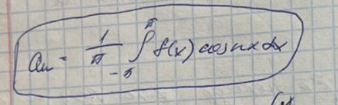 aₙ = 1/π ∫_{-π}^{π} f(x) cosnxdx